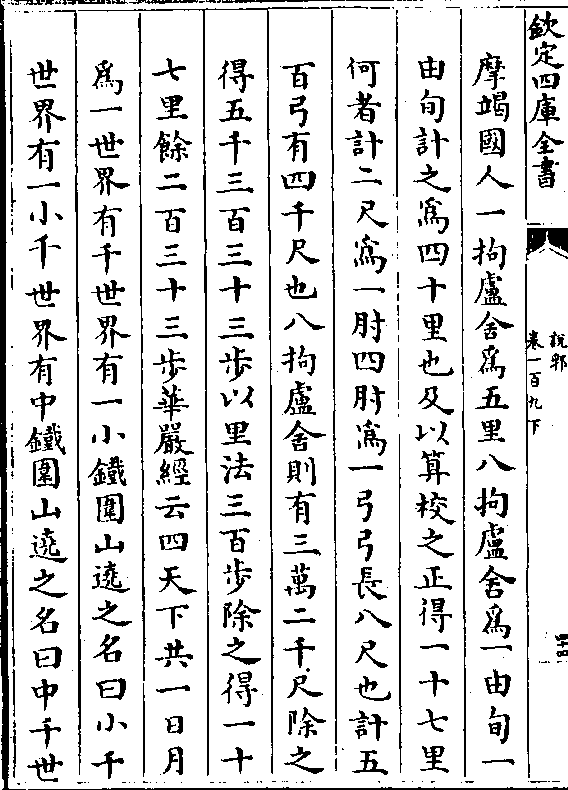 欽定四庫全書
說郛
卷一百九下
摩竭國人一拘盧舍爲五里八拘盧舍爲一由旬一
由旬計之爲四十里也及以算校之正得一十七里
何者計二尺爲一肘四肘爲一弓弓長八尺也計五
百弓有四千尺也八拘盧舍則有三萬二千尺除之
得五千三百三十三歩以里法三百歩除之得一十
七里餘二百三十三歩華嚴經云四天下共一日月
爲一世界有千世界有一小鐵圍山遶之名曰小千
世界有一小千世界有中鐵圍山遶之名曰中千世